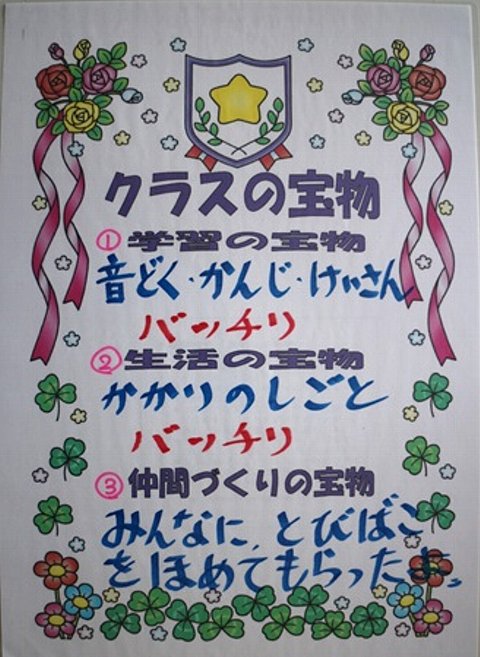 クラスの宝物
①学習の宝物
音どく・かんじ・けいさん
バッチリ
②生活の宝物
かかりのしごと
バッチリ
③仲間づくりの宝物
みんなに、とびばこ
をほめてもらったよ。